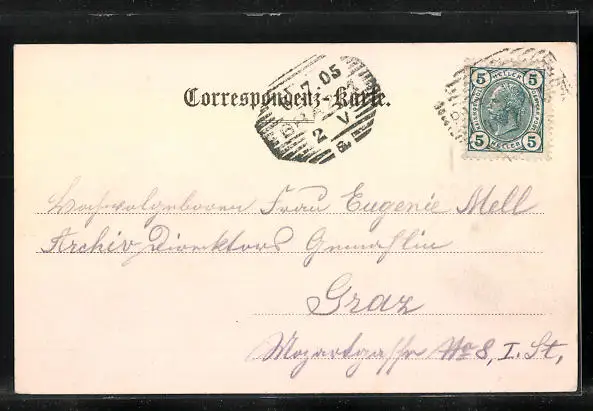 Correspondenz-Karte.
7 05
GRAZ 1
2 V
5 HELLER 5
5 HELLER 5
Hochwolgeboren Frau Eugenie Mell
Archiv Direktors Gemahlin
Graz
Mozartgasse No 8, I. St,